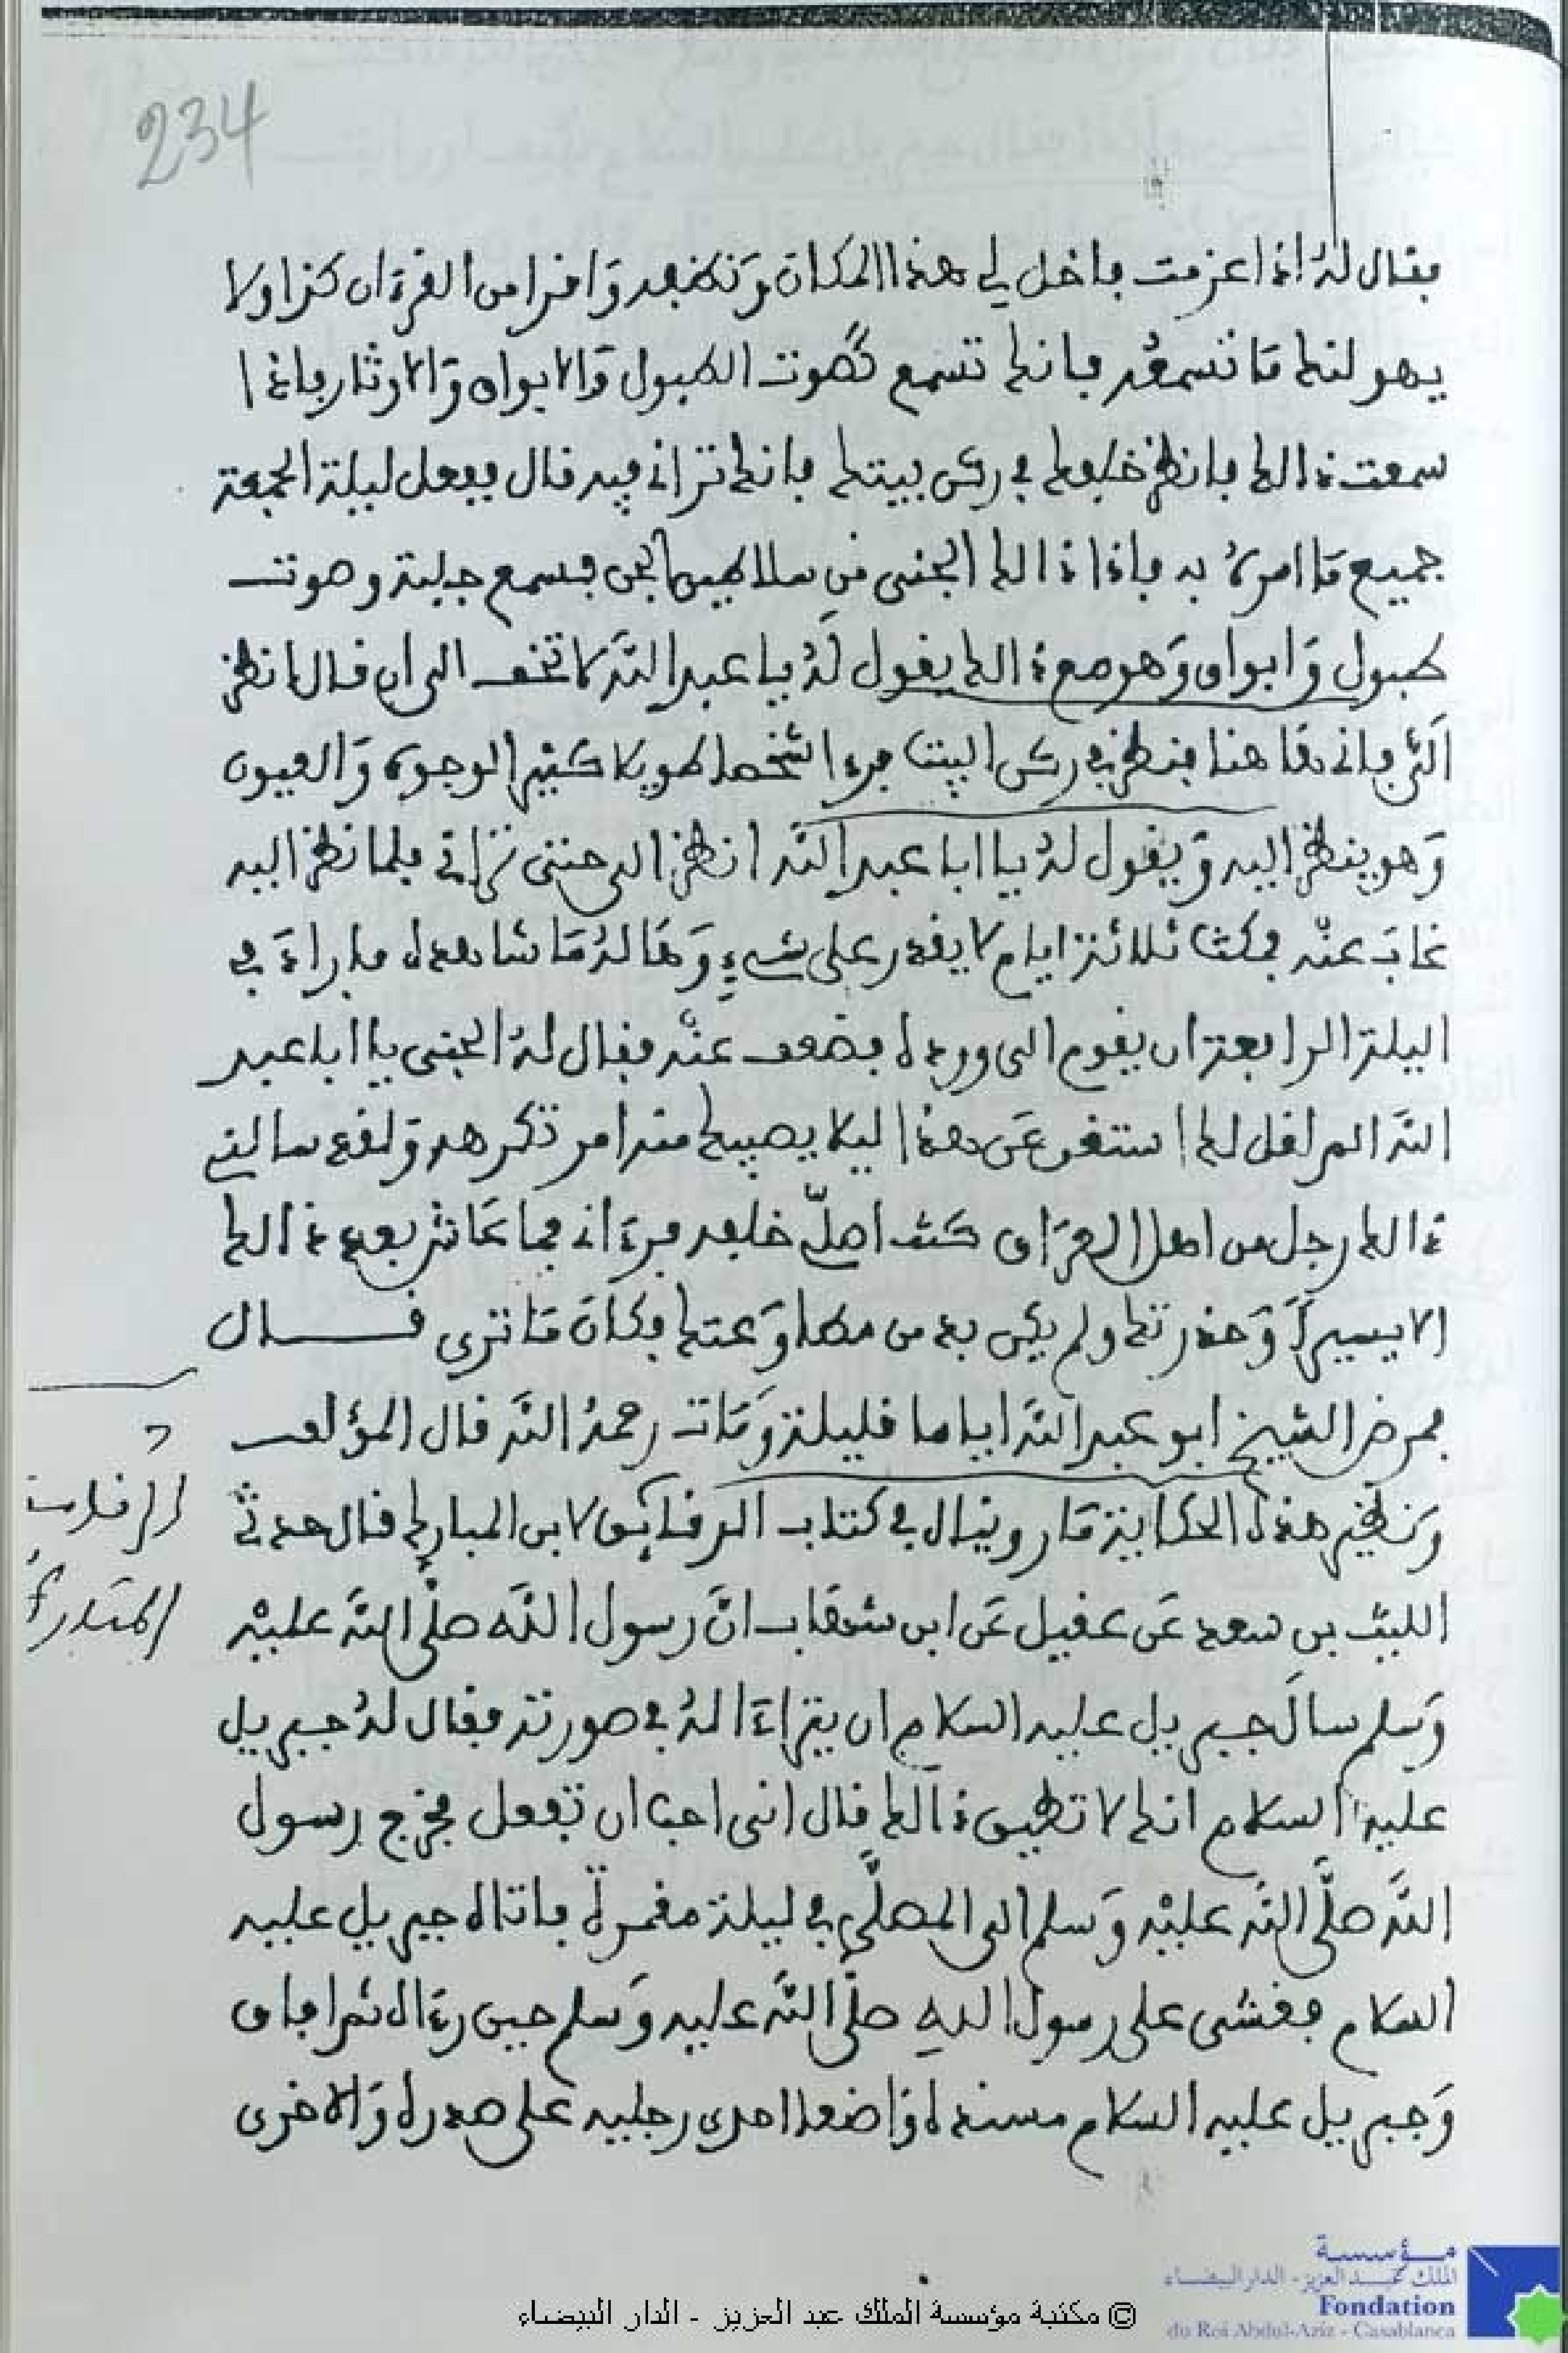 234
فقال له اذا عزمت فاخل لي هذا المكان وتكفيه واقرا من القرءان كذا ولا
يهولنك ما تسمعه فانك تسمع كصوت الطبول والابواق والاوتار فاذا
سمعت ذالك فانظر خلفك في ركن بيتك فانك تراني فيه قال ففعل ليلة الجمعة
جميع ما امره به فاذا ذالك الجني من سلاطين الجن فسمع جلبة وصوت
طبول وابواق وهو مع ذالك يقول له يا عبد الله لا تخف الى ان قال انظر
الي فاني هاهنا فنظر في ركن البيت فرءا شخصا طويلا كثير الوجوه والعيون
وهو ينظر اليه ويقول له يا ابا عبد الله انظر الي حتى تراني فلما نظر اليه
غاب عنه فمكث ثلاثة ايام لا يقدر على شيء وهاله ما شاهده فاراد في
اليلة الرابعة ان يقوم الى ورده فضعف عنه فقال له الجني يا ابا عبد
الله الم اقل لك استغن عن هذا ليلا يصيبك منه امر تكرهه ولقد سالني
ذالك رجل من اهل العراق كنت اصلي خلفه فرءاني فما عاش بعد ذالك
الا يسيرا وحذرتك ولم يكن بد من مطاوعتك فكان ما ترى قال
فمرض الشيخ ابو عبد الله اياما قليلة ومات رحمه الله قال المؤلف
ونظير هذه الحكاية ما رويناه في كتاب الرقايق لابن المبارك قال حدثني
الليث بن سعد عن عقيل عن ابن شهاب ان رسول الله صلى الله عليه
وسلم سال جبريل عليه السلام ان يتراءا له في صورته فقال له جبريل
عليه السلام انك لا تطيق ذالك قال اني احب ان تفعل فخرج رسول
الله صلى الله عليه وسلم الى المصلى في ليلة مقمرة فاتاه جبريل عليه
السلام فغشي على رسول الله صلى الله عليه وسلم حين رءاه ثم افاق
وجبريل عليه السلام مسنده واضعا احدى رجليه على صدره والاخرى
مؤسسة
الملك عبد العزيز - الدار البيضاء
Fondation
du Roi Abdul-Aziz - Casablanca
© مكتبة مؤسسة الملك عبد العزيز - الدار البيضاء